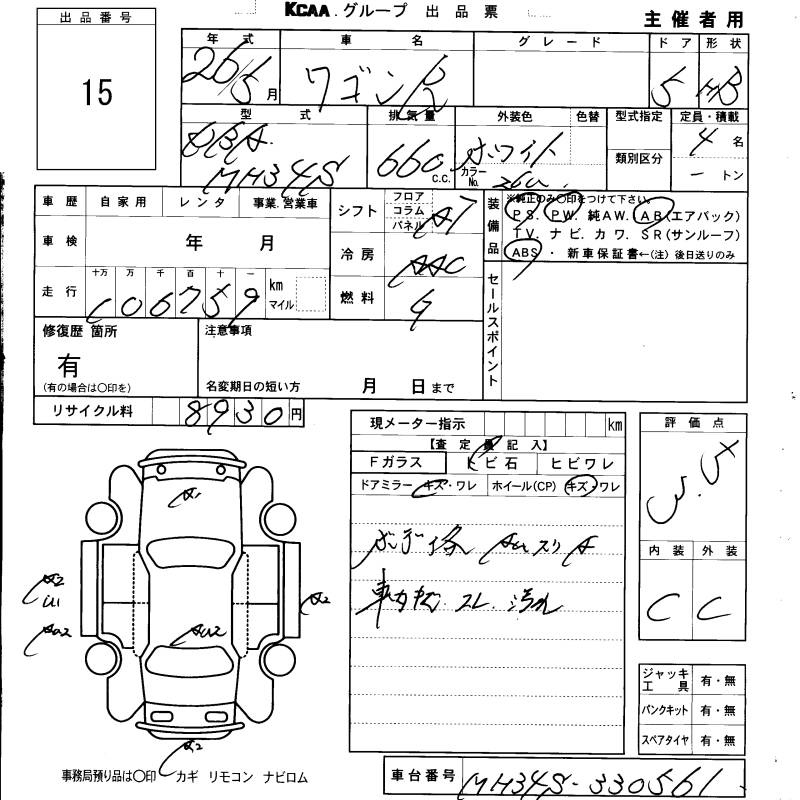 KCAA.グループ 出品票
主催者用
出品番号
15
年式 車名 グレード ドア 形状
26/5月 ワゴンR 5 HB
型式 排気量 外装色 色替 型式指定 定員・積載
DBA 660 c.c. ホワイト 4名
MH34S カラーNo. 26U 類別区分 ートン
車歴 自家用 レンタ 事業.営業車
シフト フロア コラム パネル AT
装備品 ※純正のみ〇印をつけて下さい。
PS. PW. 純AW. AB(エアバック)
TV. ナビ. カワ. SR(サンルーフ)
ABS ・ 新車保証書←(注)後日送りのみ
車検 年 月
冷房 AAC
走行 十万 万 千 百 十 一 km マイル
106759
燃料 G
セールスポイント
修復歴 箇所
有
(有の場合は〇印を)
注意事項
名変期日の短い方 月 日まで
リサイクル料 8930円
現メーター指示 km
【査定員記入】
Fガラス トビ石 ヒビワレ
ドアミラー キズ・ワレ ホイール(CP) キズ・ワレ
車内 コゲ 汚れ
評価点
3.5
内装 外装
C C
A1
A2
U1
AU2
A2
AU2
A2
ジャッキ工具 有・無
パンクキット 有・無
スペアタイヤ 有・無
事務局預り品は〇印 カギ リモコン ナビロム
車台番号 MH34S-330561